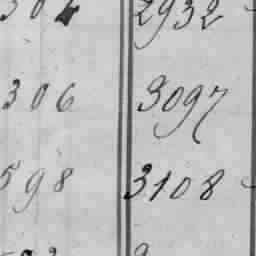 304 2932
306 3097
598 3108